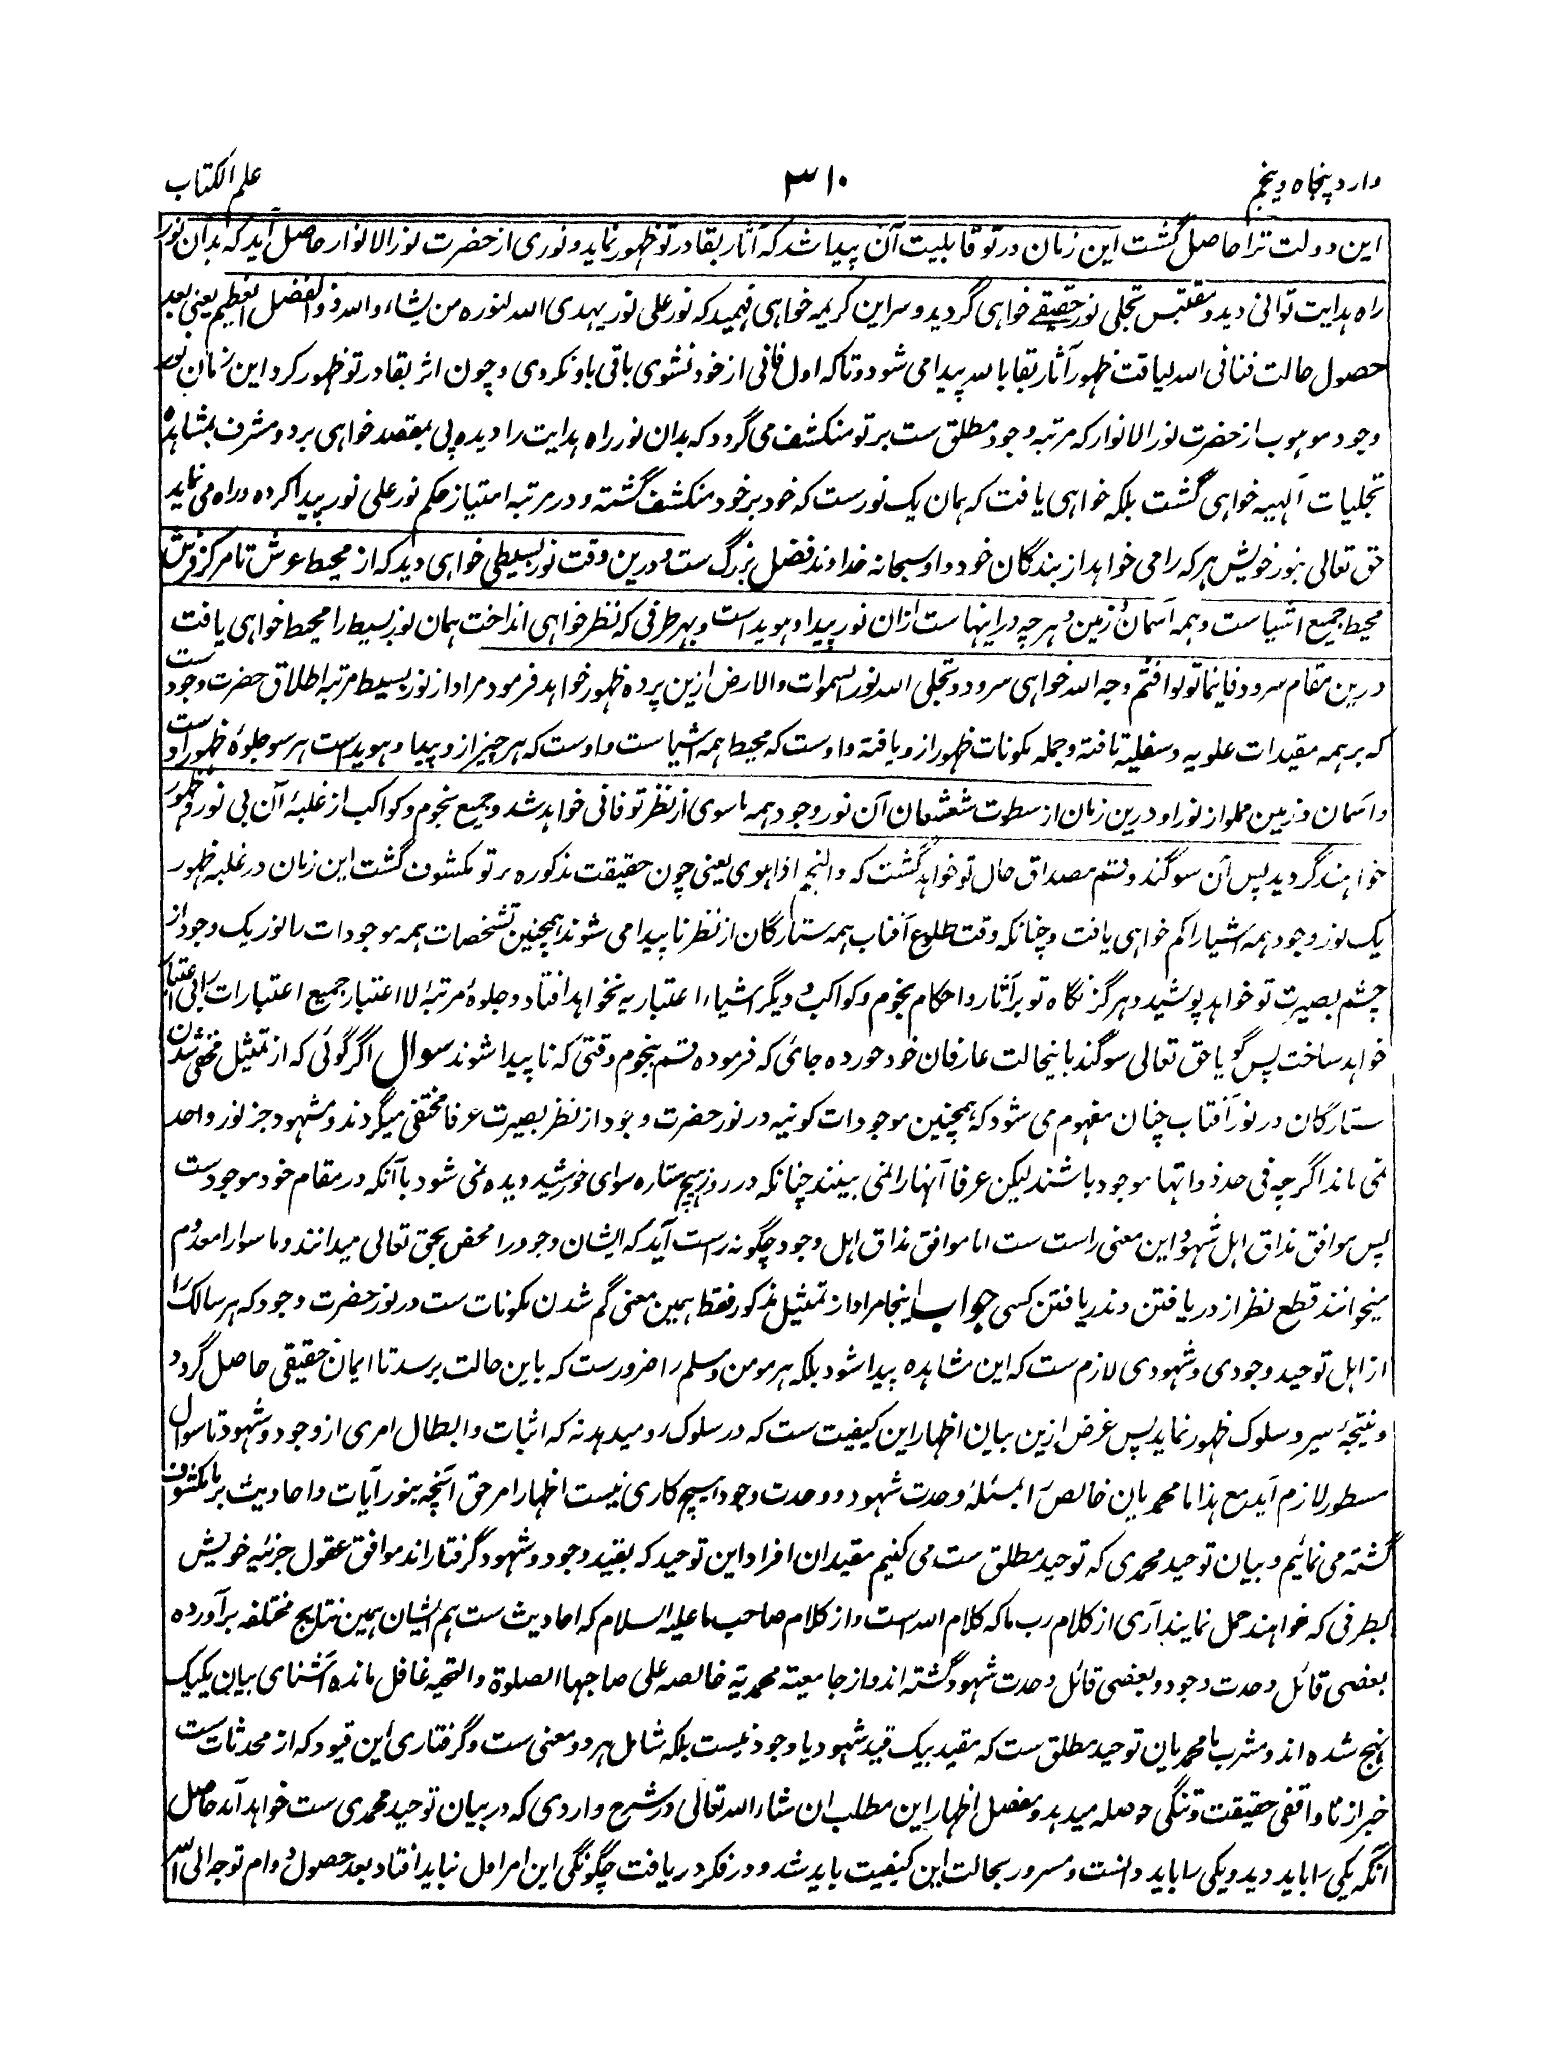 وارد پنجاه و پنجم ۳۱۰ علم الکتاب
این دولت ترا حاصل گشت این زمان در تو قابلیت آن پیدا شد که آثار بقا در تو ظهور نماید و نوری از حضرت نور الانوار حاصل آید که بدان نور
راه هدایت توانی دید و مقتبس تجلی نور حقیقے خواهی گردید و سر این کریمه خواهی فهمید که نور علی نور یهدی الله لنوره من یشاء والله ذو الفضل العظیم یعنی بعد
حصول حالت فنا فی الله لیاقت ظهور آثار بقا بالله پیدا می شود و تا که اول فانی از خود نشوی باقی باو نگردی و چون اثر بقا در تو ظهور کرد این زمان نور
وجود موهوب از حضرت نور الانوار که مرتبه وجود مطلق ست بر تو منکشف می گردد که بدان نور راه هدایت را دیده پی بمقصد خواهی برد و مشرف بمشاهده
تجلیات آلهیه خواهی گشت بلکه خواهی یافت که همان یک نورست که خود بر خود منکشف گشته و در مرتبه امتیاز حکم نور علی نور پیدا کرده و راه می نماید
حق تعالی بنور خویش هر که را می خواهد از بندگان خود و او سبحانه خداوند فضل بزرگ ست و درین وقت نور بسیطی خواهی دید که از محیط عرش تا مرکز فرش
محیط جمیع اشیاست و همه آسمان و زمین و هر چه در اینهاست ازان نور پیدا و هویداست و بهر طرفی که نظر خواهی انداخت همان نور بسیط را محیط خواهی یافت
درین مقام سرود فاینما تولوا فثم وجه الله خواهی سرود و تجلی الله نور السموات والارض ازین پرده ظهور خواهد فرمود مراد از نور بسیط مرتبه اطلاق حضرت وجود ست
که بر همه مقیدات علویه و سفلیه تافته و جمله مکونات ظهور ازو یافته و اوست که محیط همه اشیاست و اوست که هر چیز ازو پیدا و هویدست هر سو جلوهٔ ظهور اوست
و آسمان و زمین مملو از نور او درین زمان از سطوت شعشعان آن نور وجود همه ماسوی از نظر تو فانی خواهد شد و جمیع نجوم و کواکب از غلبهٔ آن بی نور و ظهور
خواهند گردید پس آن سوگند و قسم مصداق حال تو خواهد گشت که والنجم اذا هوی یعنی چون حقیقت مذکوره بر تو مکشوف گشت این زمان در غلبه ظهور
یک نور وجود همه اشیا را گم خواهی یافت و چنانکه وقت طلوع آفتاب همه ستارگان از نظر ناپیدا می شوند همچنین تشخصات همه موجودات را نور یک وجود از
چشم بصیرت تو خواهد پوشید و هرگز نگاه تو بر آثار و احکام نجوم و کواکب و دیگر اشیاء اعتباریه نخواهد افتاد و جلوهٔ مرتبهٔ لا اعتبار جمیع اعتبارات را بی اعتبار
خواهد ساخت پس گویا حق تعالی سوگند باینحالت عارفان خود خورده جائی که فرموده قسم بنجوم وقتی که ناپیدا شوند سوال اگر گوئی که از تمثیل مخفی شدن
ستارگان در نور آفتاب چنان مفهوم می شود که همچنین موجودات کونیه در نور حضرت وجود از نظر بصیرت عرفا مختفی میگردند و مشهود جز نور واحد
نمی ماند اگر چه فی حد ذواتها موجود باشند لیکن عرفا آنها را نمی بینند چنانکه در روز هیچ ستاره سوای خورشید دیده نمی شود با آنکه در مقام خود موجودست
پس موافق مذاق اهل شهود این معنی راست ست اما موافق مذاق اهل وجود چگونه راست آید که ایشان وجود را محض بحق تعالی میدانند و ماسوا را معدوم
میخوانند قطع نظر از دریافتن و ندریافتن کسی جواب اینجا مراد از تمثیل مذکور فقط همین معنی گم شدن مکونات ست در نور حضرت وجود که هر سالک را
از اهل توحید وجودی و شهودی لازم ست که این مشاهده پیدا شود بلکه هر مومن و مسلم را ضرورست که باین حالت برسد تا ایمان حقیقی حاصل گردد
و نتیجهٔ سیر و سلوک ظهور نماید پس غرض ازین بیان اظهار این کیفیت ست که در سلوک رو میدهد نه که اثبات و ابطال امری از وجود و شهود تا سوال
مسطور لازم آید مع هذا ما محمدیان خالص را بمسئلهٔ وحدت شهود و وحدت وجود هیچ کاری نیست اظهار امر حق آنچه بنور آیات و احادیث بر ما مکشوف
گشته می نمائیم و بیان توحید محمدی که توحید مطلق ست می کنیم مقیدان افراد این توحید که بقید وجود و شهود گرفتار اند موافق عقول جزئیه خویش
بطرفی که خواهند حمل نمایند آری از کلام رب ما که کلام الله است و از کلام صاحب ما علیه السلام که احادیث ست هم ایشان همین نتایج مختلفه برآورده
بعضی قائل وحدت وجود و بعضی قائل وحدت شهود گشته اند و از جامعیته محمدیة خالصه علی صاحبها الصلوة والتحیه غافل مانده آشنای بیان یکیک
نهج شده اند و مشرب ما محمدیان توحید مطلق ست که مقید بیک قید شهود یا وجود نیست بلکه شامل هر دو معنی ست و گرفتاری این قیود که از محدثات ست
خبر از ناواقفی حقیقت و تنگی حوصله میدهد و مفصل اظهار این مطلب ان شاء الله تعالی در شرح واردی که در بیان توحید محمدی ست خواهد آمد حاصل
آنکه یکی را باید دید و یکی را باید دانست و مسرور بحالت این کیفیت باید شد و در فکر دریافت چگونگی این امر اول نباید افتاد بعد حصول دوام توجه الی الله